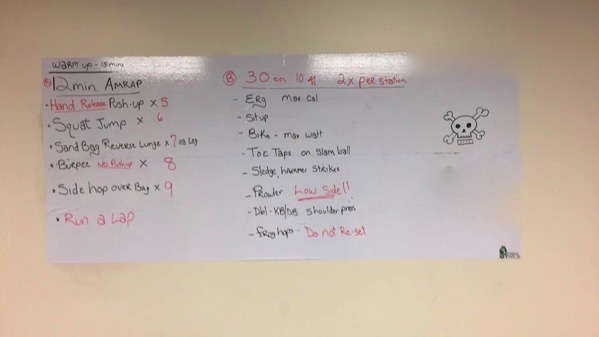 Warm up - 15mins
A 12min AMRAP
• Hand Release Push-up x 5
• Squat Jump x 6
• Sand Bag Reverse Lunge x 7 ea Leg
• Burpee No Pushup x 8
• Side hop over Bag x 9
• Run a Lap
B 30 on 10 off 2x per station
- Erg max cal
- Situp
- Bike - max watt
- Toe Taps on Slam ball
- Sledge hammer Strikes
- Prowler Low Side!!
- Dbl-KB/DB shoulder press
- frog hops - Do not Re-set